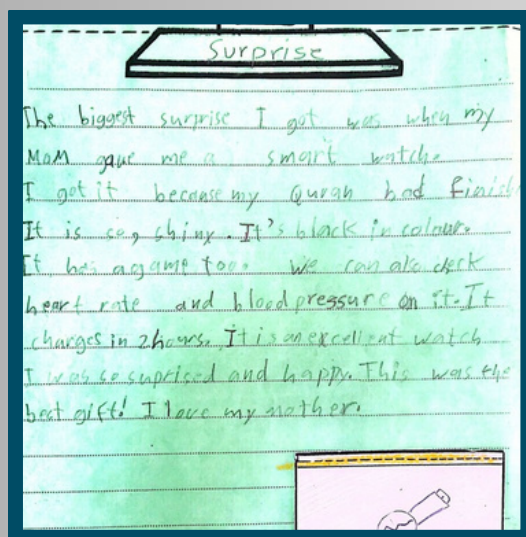 Surprise
The biggest surprise I got was when my
Mom gave me a smart watch.
I got it because my Qurah had finish
It is so, shiny. It's black in colour.
It has a game too. We can also check
heart rate and blood pressure on it. It
charges in 2 hours. It is an excellent watch
I was so suprised and happy. This was the
best gift! I love my mother.